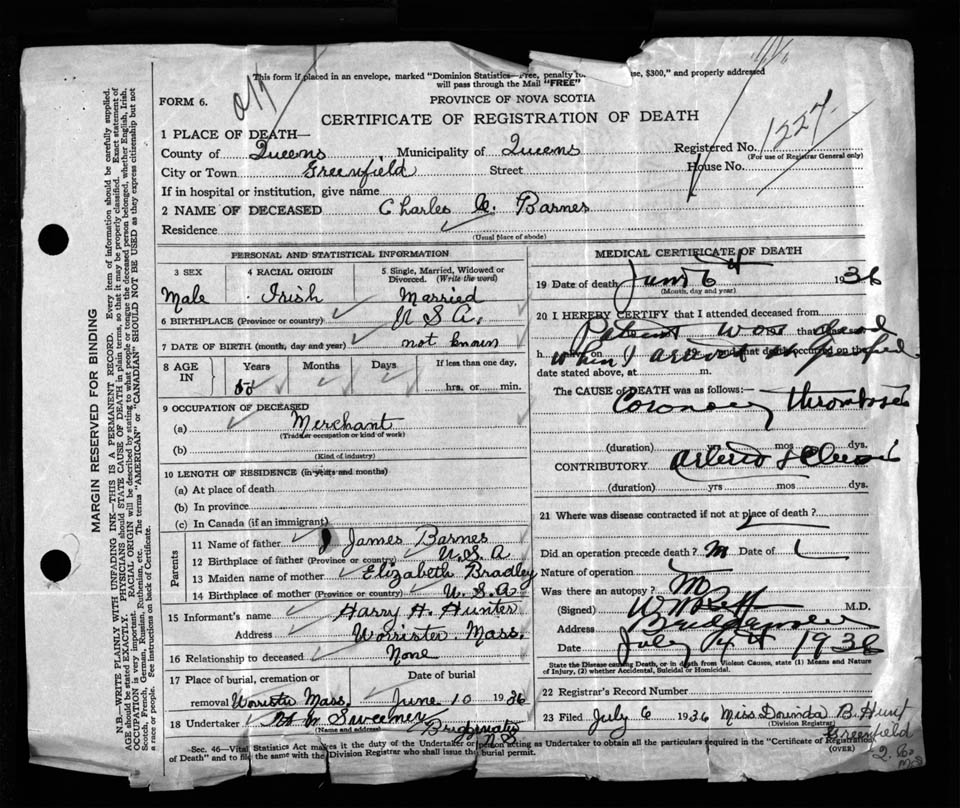 This form if placed in an envelope, marked "Dominion Statistics—Free, penalty se, $300," and properly addressed
will pass through the Mail "FREE"
FORM 6.
PROVINCE OF NOVA SCOTIA
CERTIFICATE OF REGISTRATION OF DEATH
1227
1 PLACE OF DEATH—
County of Queens Municipality of Queens Registered No.
(For use of Registrar General only)
City or Town Greenfield Street House No.
If in hospital or institution, give name
2 NAME OF DECEASED Charles Barnes
Residence
(Usual place of abode)
PERSONAL AND STATISTICAL INFORMATION
3 SEX
Male
4 RACIAL ORIGIN
Irish
5 Single, Married, Widowed or Divorced. (Write the word)
Married
6 BIRTHPLACE (Province or country) U S A.
7 DATE OF BIRTH (month, day and year) not known
8 AGE IN Years Months Days If less than one day,
hrs. or min.
9 OCCUPATION OF DECEASED
(a) Merchant
(Trade or occupation or kind of work)
(b)
(Kind of industry)
10 LENGTH OF RESIDENCE (in years and months)
(a) At place of death
(b) In province
(c) In Canada (if an immigrant)
Parents
11 Name of father James Barnes
12 Birthplace of father (Province or country) U.S A
13 Maiden name of mother Elizabeth Bradley
14 Birthplace of mother (Province or country) U.S.A
15 Informant's name Harry H. Hunter
Address Worrister. Mass.
16 Relationship to deceased None
17 Place of burial, cremation or Date of burial
removal Worristr Mass. June 10 1936
18 Undertaker Sweeney
(Name and address)
MEDICAL CERTIFICATE OF DEATH
19 Date of death 6 1936
(Month, day and year)
20 I HEREBY CERTIFY that I attended deceased from
Patient was dead
when I arrived at
date stated above, at m.
The CAUSE of DEATH was as follows:—
Coronary Thrombosis
(duration) yrs mos dys.
CONTRIBUTORY
(duration) yrs mos dys.
21 Where was disease contracted if not at place of death?
Did an operation precede death? Date of
Nature of operation
Was there an autopsy?
(Signed) M.D.
Address
Date July 1936
State the Disease causing Death, or in death from Violent Causes, state (1) Means and Nature
of Injury, (2) whether Accidental, Suicidal or Homicidal.
22 Registrar's Record Number
23 Filed July 6 1936 Miss Dorinda B. Hunt
(Division Registrar)
Greenfield
(OVER)
Sec. 46—Vital Statistics Act makes it the duty of the Undertaker or person acting as Undertaker to obtain all the particulars required in the "Certificate of Registration
of Death" and to file the same with the Division Registrar who shall issue the burial permit.
MARGIN RESERVED FOR BINDING
N.B.—WRITE PLAINLY WITH UNFADING INK—THIS IS A PERMANENT RECORD. Every item of information should be carefully supplied.
AGE should be stated EXACTLY. PHYSICIANS should STATE CAUSE OF DEATH in plain terms, so that it may be properly classified. Exact statement of
OCCUPATION is very important. RACIAL ORIGIN will be described by stating to what people or tongue the deceased person belonged, whether English, Irish,
Scotch, French, German, Russian, Ruthenian, etc. The terms "AMERICAN" or "CANADIAN" SHOULD NOT BE USED as they express citizenship but not
a race or people. See instructions on back of Certificate.